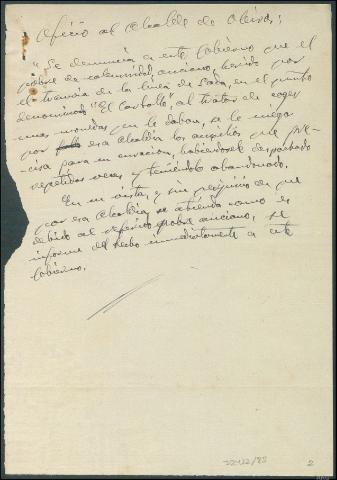 Oficio al Alcalde de Oleiros:
"Se denuncia a este Gobierno que el
pobre de solemnidad, anciano, herido por
el tranvia de la linea de Sada, en el punto
denominado "El Carballo", al tratar de coger
unas monedas que le daban, se le niega
por esa Alcaldia los auxilios que pre-
cisa para su curacion, habiendosele despachado
repetidas veces y teniendolo abandonado.
En su vista, y sin perjuicio de que
por esa Alcaldia se atienda como es
debido al referido pobre anciano, se
informe del hecho inmediatamente a este
Gobierno.
2